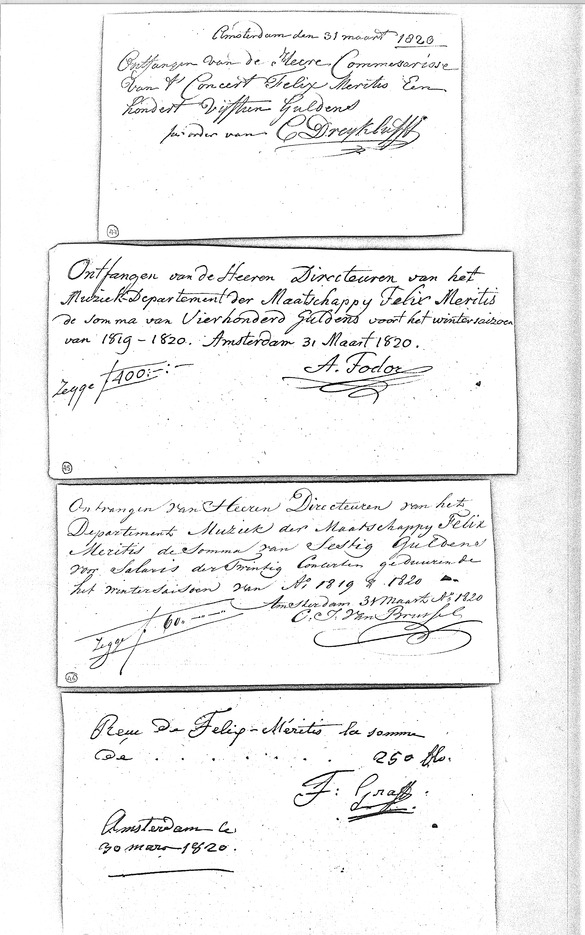 Amsterdam den 31 maart 1820
Ontfangen van de Heere Commesarisse
van 't Concert Felix Meritis Een
hondert Vijftien Guldens
per order van C Dreyklufft
44
Ontfangen van de Heeren Directeuren van het
Muziek-Departement der Maatschappy Felix Meritis
de somma van Vierhonderd Guldens voor het wintersaizoen
van 1819-1820. Amsterdam 31 Maart 1820.
Zegge f 400:-:-
A. Fodor
45
Ontvangen van Heeren Directeuren van het
Departement Muziek der Maatschappy Felix
Meritis de Somma van Sestig Guldens
voor Salaris der Twintig Concerten geduurende
het wintersaisoen van Aº 1819 & 1820
Amsterdam 31 Maart Aº 1820
Zegge f 60.-
C. J. Van Brussel
46
Reçu de Felix-Méritis la somme
de . . . . . . . 250 flo.
F: Graff.
Amsterdam le
30 mars 1820.